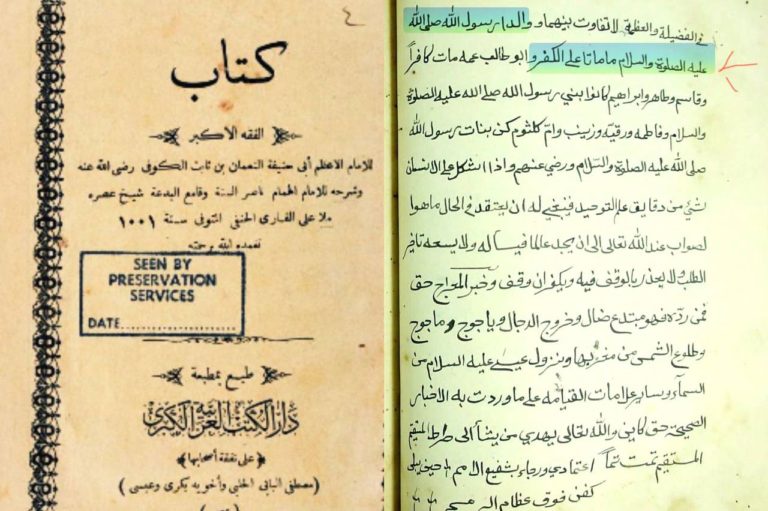 ٤
كتاب
الفقه الاكبر
للامام الاعظم أبى حنيفة النعمان بن ثابت الكوفى رضى الله عنه
وشرحه للامام الهمام ناصر السنة وقامع البدعة شيخ عصره
ملا على القارى الحنفى المتوفى سنة ١٠٠١
تغمده الله برحمته
SEEN BY
PRESERVATION
SERVICES
DATE
طبع بمطبعة
دار الكتب العربية الكبرى
على نفقة أصحابها
(مصطفى البابى الحلبى وأخويه بكرى وعيسى)
فى الفضيلة والعظمة لا تفاوت بينهما ووالدا رسول الله صلى الله
عليه الصلوة والسلام ماماتا على الكفر وابو طالب عمه مات كافرا
وقاسم وطاهر وابراهيم كانوا بنى رسول الله صلى الله عليه الصلوة
والسلام وفاطمه ورقيه وزينب وام كلثوم كن بنات رسول الله
صلى الله عليه الصلوة والسلام ورضى عنهم واذا اشكل على الانسان
شئ من دقايق علم التوحيد فينبغى له ان يعتقد فى الحال ماهوا
لصواب عند الله تعالى الى ان يجد عالما فيساله ولا يسعه تاخير
الطلب ولا يعذر بالوقف فيه ويكفر ان وقف وخبر المعراج حق
فمن رده فهو مبتدع ضال وخروج الدجال وياجوج وماجوج
وطلوع الشمس من مغربها ونزول عيسى عليه السلام من
السماء وساير علامات القيامه على ماوردت به الاخبار
الصحيحة حق كاين والله تعالى يهدى من يشا الى صراط المستقيم
المستقيم تمت تما اعتمادى ورجاء بشفيع الامم حين يبلى
كفن فوق عظام